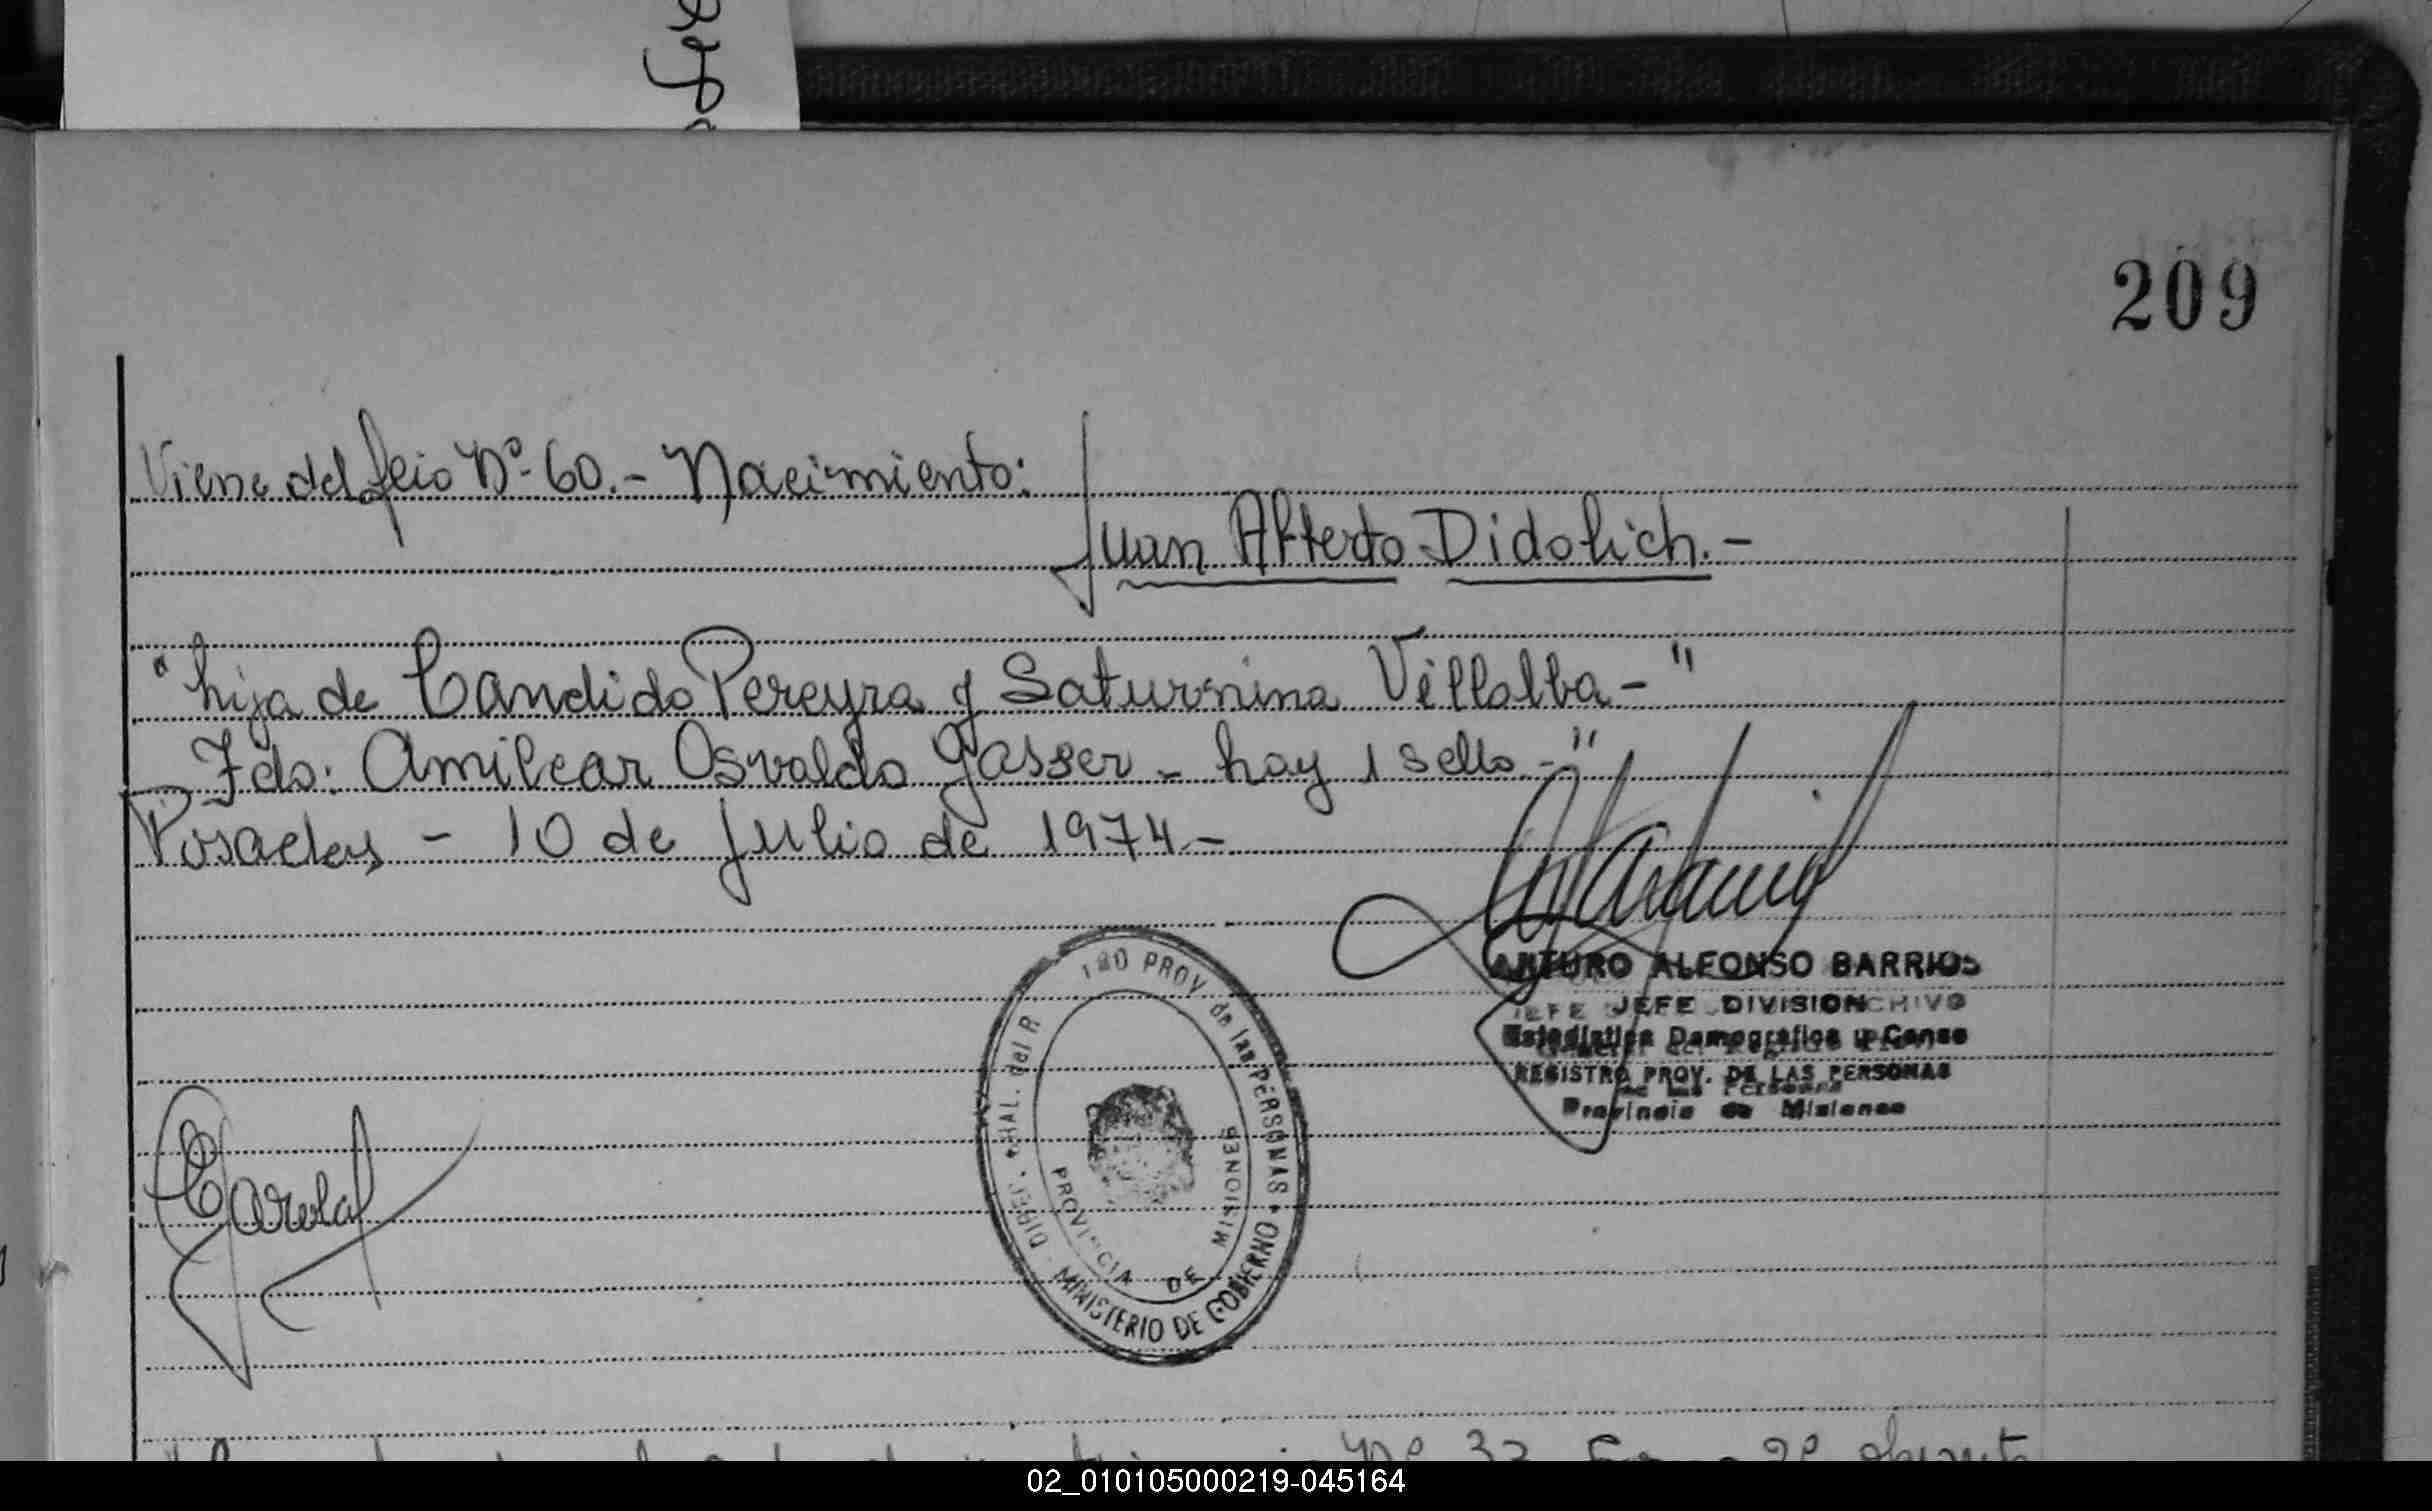 209
Viene del feio Nº 60.- Nacimiento:
Juan Alberto Didolich.-
"hija de Candido Pereyra y Saturnina Villalba-"
Fdo: Amilcar Osvaldo Gasser - hay 1 sello.-"
Posadas - 10 de Julio de 1974-
ARTURO ALFONSO BARRIOS
JEFE DIVISION
Estadistica Demografica y Censo
REGISTRO PROV. DE LAS PERSONAS
Provincia de Misiones
PROV de las PERSONAS
MINISTERIO DE GOBIERNO
PROVINCIA DE MISIONES
Nº 33
02_010105000219-045164